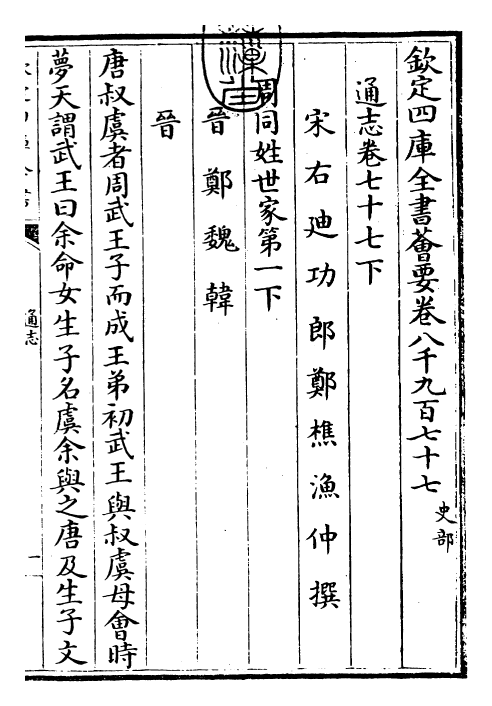 欽定四庫全書薈要卷八千九百七十七
史部
通志卷七十七下
宋右迪功郎鄭樵漁仲撰
周同姓世家第一下
晉 鄭 魏 韓
晉
唐叔虞者周武王子而成王弟初武王與叔虞母會時
夢天謂武王曰余命女生子名虞余與之唐及生子文
通志
一